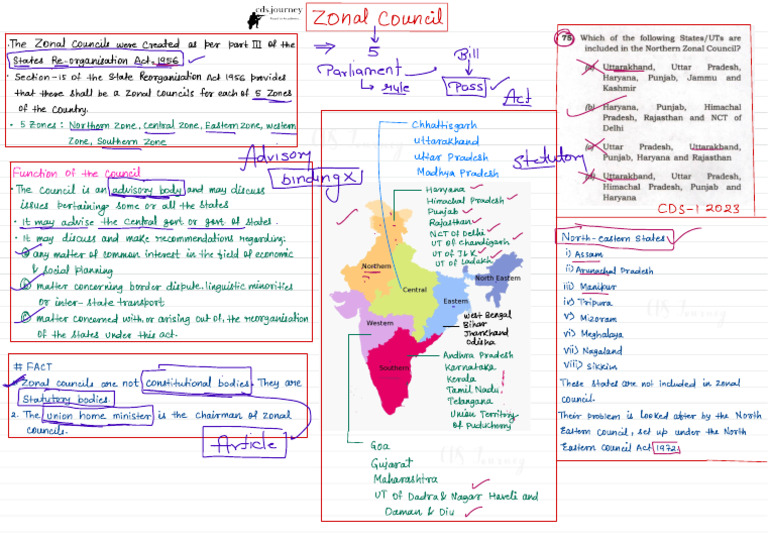 cds.journey
ZONAL COUNCIL
The Zonal Councils were created as per part III of the
States Re-organisation Act, 1956
Section-15 of the State Reorganisation Act 1956 provides
that these shall be a zonal councils for each of 5 zones
of the country.
5 Zones : Northern zone, Central zone, Eastern zone, western
zone, Southern zone
5
Parliament
rule
Bill
Pass
Act
Advisory
binding x
Statutory
Function of the council
The council is an advisory body and may discuss
issues pertaining some or all the states
it may advise the central govt or govt of states.
it may discuss and make recommendations regarding:
any matter of common interest in the field of economic
& social planning
matter concerning border dispute, linguistic minorities
or inter-state transport
matter concerned with or arising out of, the reorganisation
of the states under this act.
# FACT
Zonal councils are not constitutional bodies. They are
Statutory bodies.
2. The union home minister is the chairman of zonal
councils.
Article
Chhattisgarh
uttarakhand
uttar Pradesh
Madhya Pradesh
Haryana
Himachal Pradesh
Punjab
Rajasthan
NCT of Delhi
UT of Chandigarh
UT of J&K
UT of Ladakh
Northern
North Eastern
Central
Eastern
Western
Southern
west Bengal
Bihar
Jharkhand
Odisha
Andhra Pradesh
Karnataka
Kerala
Tamil Nadu
Telangana
Union Territory
of Puducherry
Goa
Gujarat
Maharashtra
UT of Dadra & Nagar Haveli and
Daman & Diu
75. Which of the following States/UTs are
included in the Northern Zonal Council?
(a) Uttarakhand, Uttar Pradesh,
Haryana, Punjab, Jammu and
Kashmir
(b) Haryana, Punjab, Himachal
Pradesh, Rajasthan and NCT of
Delhi
Uttar Pradesh, Uttarakhand,
Punjab, Haryana and Rajasthan
Uttarakhand, Uttar Pradesh,
Himachal Pradesh, Punjab and
Haryana
CDS-1 2023
North-eastern States
i) Assam
ii) Arunachal Pradesh
iii) Manipur
iv) Tripura
v) Mizoram
vi) Meghalaya
vii) Nagaland
viii) Sikkim
These states are not included in zonal
council.
Their problem is looked after by the North
Eastern Council, set up under the North
Eastern Council Act 1972